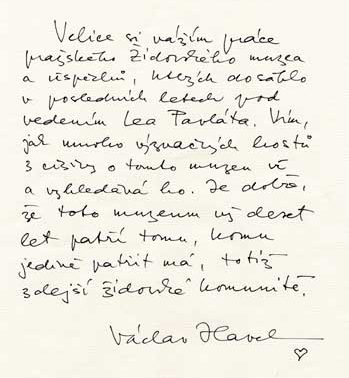 Velice si vážím práce
pražského Židovského muzea
a úspěchů, kterých dosáhlo
v posledních letech pod
vedením Lea Pavláta. Vím,
jak mnoho význačných hostů
z ciziny o tomto muzeu ví
a vyhledává ho. Je dobře,
že toto muzeum už deset
let patří tomu, komu
jedině patřit má, totiž
zdejší židovské komunitě.
Václav Havel